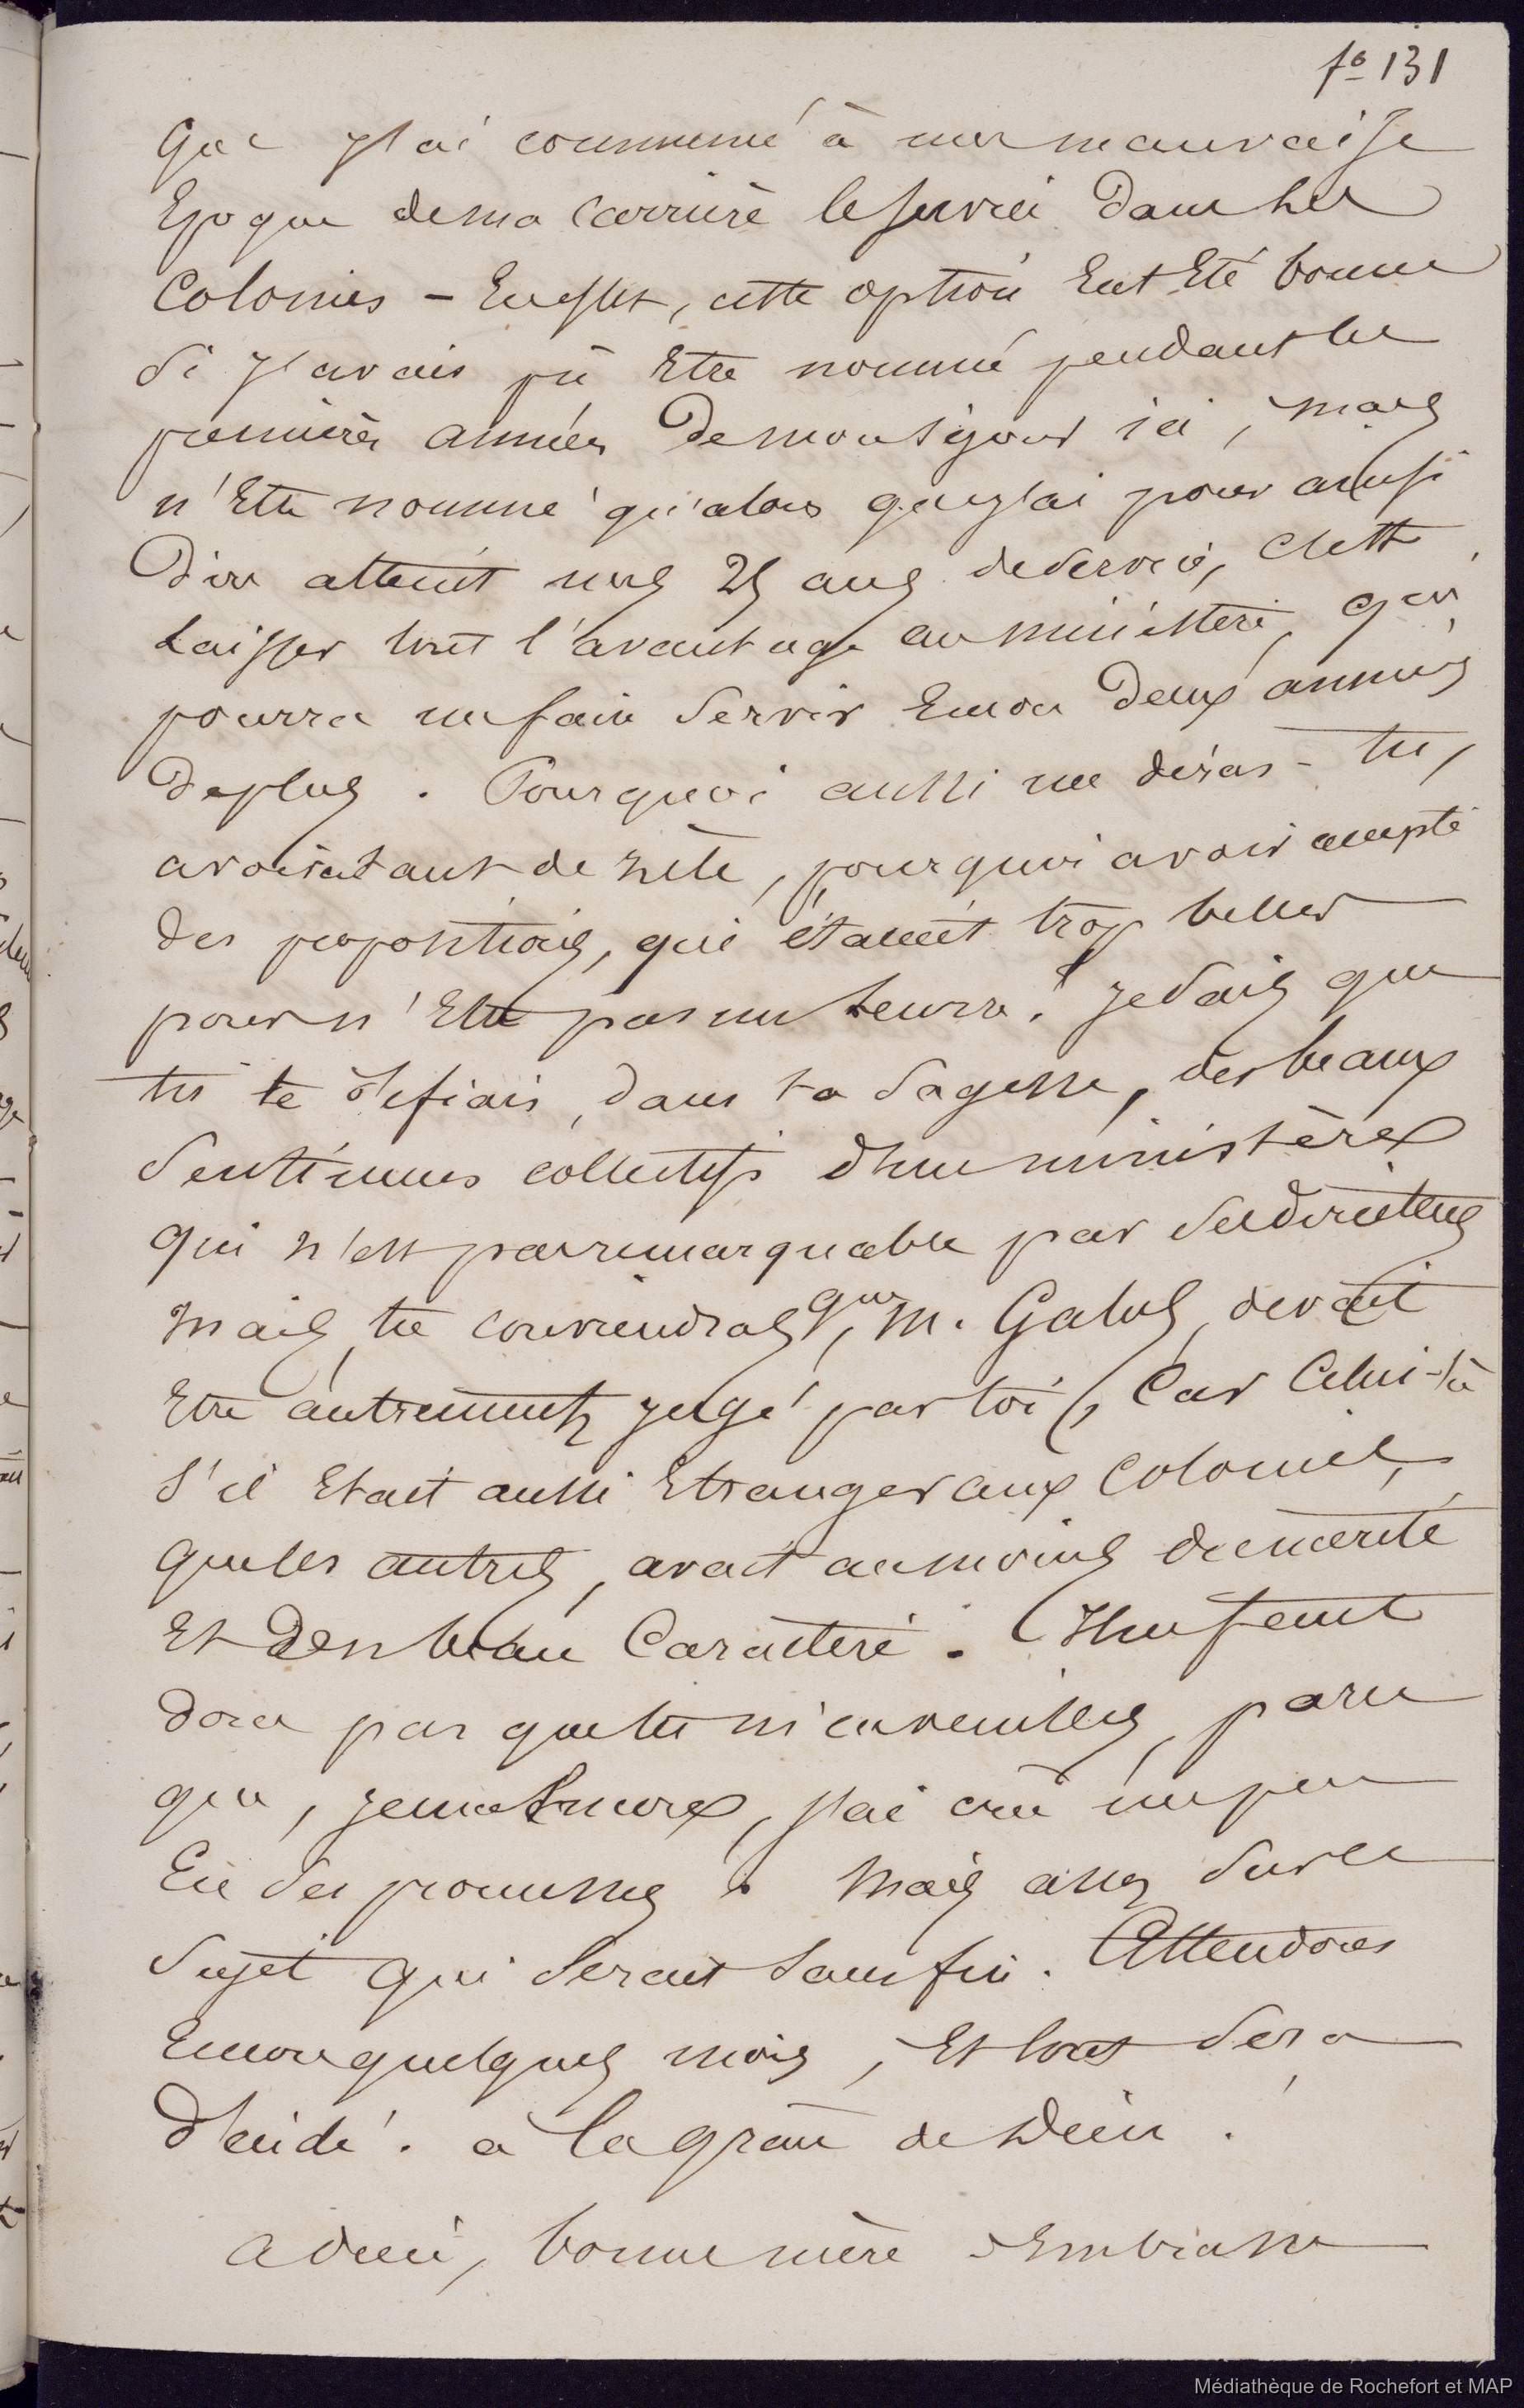 fo 131
que j'ai commencé à une mauvaise
Epoque de ma Carrière le service dans les
Colonies – En effet, cette option Eut Eté bonne
si j'avais pû Etre nommé pendant les
premières années de mon séjour ici, mais
n'Etre nommé qu'alors que j'ai pour ainsi
Dire atteint mes 25 ans de service, c'est
Laisser tout l'avantage au ministère, qui
pourra me faire Servir Encore Deux années
de plus. Pourquoi aussi me diras-tu,
avoir tant de zèle, pourquoi avoir accepté
des propositions, qui étaient trop belles
pour n'Etre pas un leurre? je sais que
tu te défiais, dans ta Sagesse, des beaux
Sentimens collectifs d'un ministère
qui n'est pas remarquable par ses directeurs
Mais, tu conviendras que M. Galos, devait
Etre autrement jugé par toi, Car Celui-là
s'il Etait aussi Etranger aux Colonies,
que les autres, avait au moins du mérite
Et Des beau Caractère. Il ne faut
Donc pas que tu m'en veuilles, parce
que, je me suis, j'ai crû un peu
En des promesses. Mais assez sur ce
Sujet qui Serait Sans fin. Attendons
Encore quelques mois, Et tout Sera
Décidé. à la grâce de Dieu.
adieu, bonne mère Embrasse
Médiathèque de Rochefort et MAP